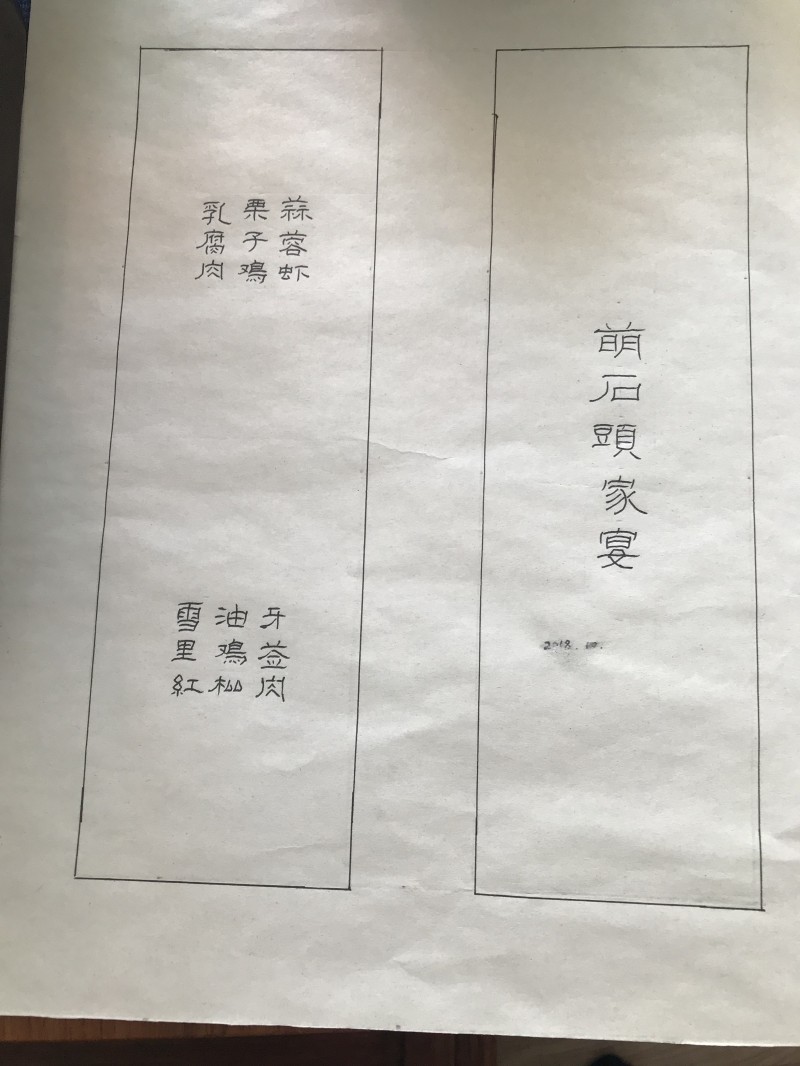 萌石頭家宴
2018.10.
蒜蓉虾
栗子鸡
乳腐肉
牙签肉
油鸡枞
雪里紅